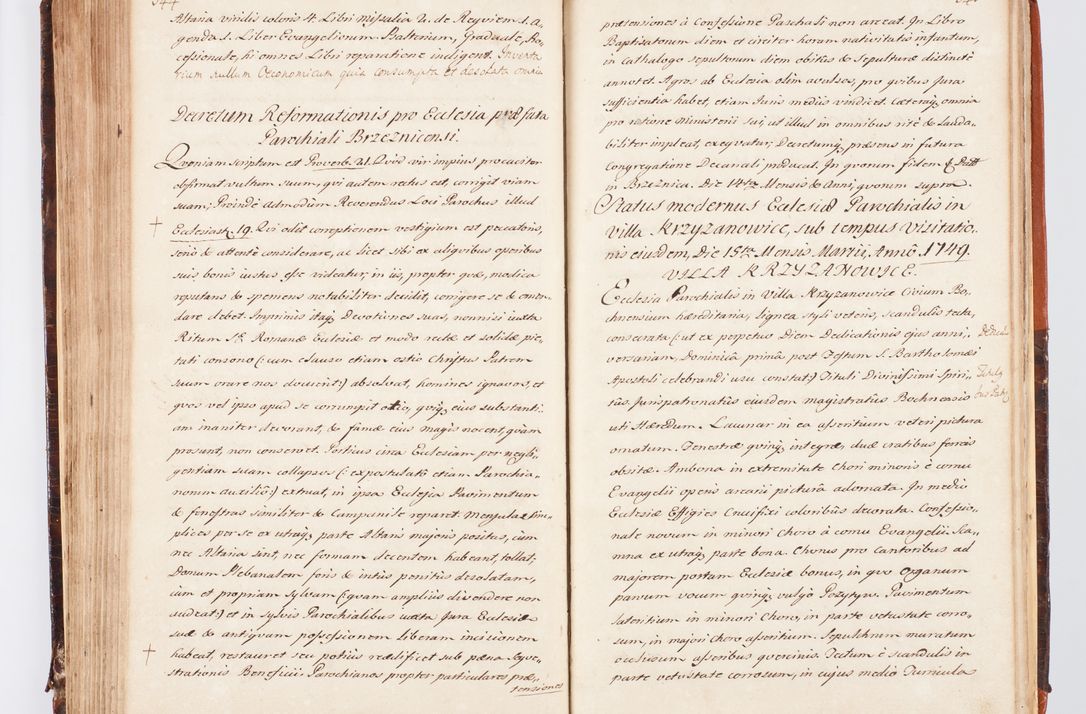 344
Altaria viridis coloris 4. Libri missalia 2. de Reqviem 1. A,,
genda 1. Liber Evangeliorum Psalterium, Graduale, Pro,,
cessionale, hi omnes Libri reparatione indigent. Inventa
rium nullum Oeconomicum quia consumpta et desolata omnia
Decretum Reformationis pro Ecclesia præfata
Parochiali Brzeznicensi.
Qvoniam scriptum est Proverb. 21. Qvod vir impius procaciter
obfirmat vultum suum, qvi autem rectus est, corrigit viam
suam; Proindè admodùm Reverendus Loci Parochus illud
Ecclesiast. 19. Qvi odit correptionem vestigium est peccatoris,
seriò & attentè considerare, ac licet sibi ex aliqvibus operibus
suis bonis iustus esse videatur, in iis, propter qvæ, modica
reputans & spernens notabiliter decidit, corrigere se & emen,,
dare debet. Imprimis itaq; Devotiones suas, nonnisi iuxta
Ritum S. R. Romanæ Ecclesiæ et modo rectæ et solidæ pie,,
tati consono (: cum clauso etiam ostio Christus Patrem
suum orare nos docuerit :) absolvat, homines ignavos, et
qvos vel ipso apud se corrumpit otio, qviq; eius substanti,,
am inaniter devorant, & famæ eius magis nocent, qvàm
prosunt, non conservet. Porticus circa Ecclesiam per negli,,
gentiam suam collapsus (: expostulatô etiam Parochia,,
norum auxiliô :) extruat, in ipsa Ecclesia Pavimentum
& fenestras similiter & Campanile reparet. Mensulæ sim,,
plices per se ex utraq; parte Altaris majoris positas, cùm
nec Altaria sint, nec formam decentem habeant, tollat;
Domum Plebanalem foris & intùs penitùs desolatam,
cum et propriam sylvam (: qvam ampliùs divendere non
audeat :) et in sylvis Parochialibus iuxta Jura Ecclesiæ
suæ & antiqvam possessionem liberam incisionem
habeat, restauret seu potiùs reædificet sub pæna Seqve,,
strationis Beneficii. Parochianos propter particulares præ,,
tensiones
prætensiones à Confessione Paschali non arceat. In Libro
Baptisatorum diem et circiter horam nativitatis infantum,
in Cathalogo sepultorum diem obitûs & Sepulturæ distinctè
annotet. Agros ab Ecclesia olim avulsos, pro qvibus Jura
sufficientia habet, etiam Juris mediis vindicet. Cæteraq; omnia
pro ratione ministerii sui, ut illud in omnibus ritè & lauda,,
biliter impleat, exeqvatur; Decretumq; præsens in futura
Congregatione Decanali producat. In qvorum fidem &
in Brzeznica. Die 14ta Mensis & Anni, qvorum supra.
Status modernus Ecclesiæ Parochialis in
Villa Krzyzanowice, sub tempus Visitatio,,
nis eiusdem, Die 15ta Mensis Martii, Annô 1749.
VILLA KRZYZANOWICE.
Ecclesia Parochialis in Villa Krzyzanowice Civium Bo,,
chnensium hæreditaria, Lignea styli veteris, scandulis tecta,
consecrata (: ut ex perpetuo Diem Dedicationis ejus anni,,
versariam, Dominicâ primâ post Festum S. Bartholomæi
Apostoli celebrandi usu constat :) Tituli Divinissimi Spiri,,
tûs. Jurispatronatûs eiusdem magistratus Bochnensis
uti Hæredum. Lacunar in ea asseritium veteri pictura
ornatum. Fenestræ qvinq; integræ, duæ cratibus ferreis
obsitæ. Ambona in extremitate Chori minoris è cornu
Evangelii operis arcarii picturâ adornata. In medio
Ecclesiæ Effigies Crucifixi coloribus decorata. Confessio,,
nale novum in minori Choro à cornu Evangelii. Sca,,
mna ex utraq; parte bona. Chorus pro Cantoribus ad
majorem portam Ecclesiæ bonus, in qvo Organum
parvum vocum qvinq; vulgò Pozytyw. Pavimentum
lateritium in minori Choro, in parte vetustate corro,,
sum, in majori Choro asseritium. Sepulchrum muratum
occlusum asseribus qvercinis. Tectum è scandulis in
parte vetustate corrosum, in cujus medio Turricula